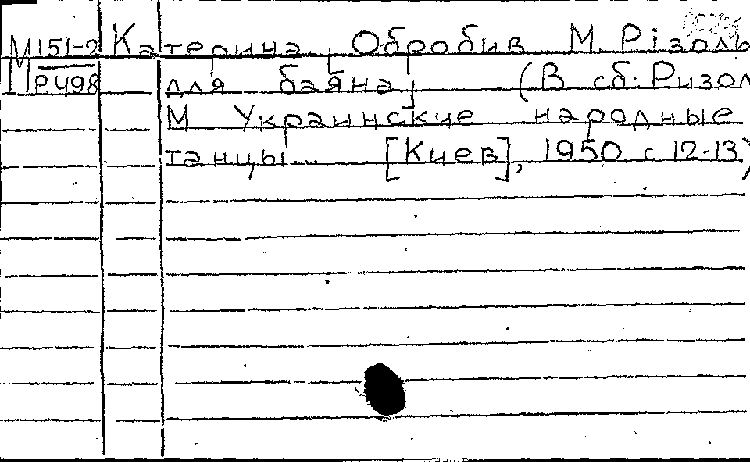 М151-2 Катерина. Обробив М. Різоль
МР498 для баяна] (В сб: Ризоль
М Украинские народные
танцы... [Киев], 1950 с 12-13)